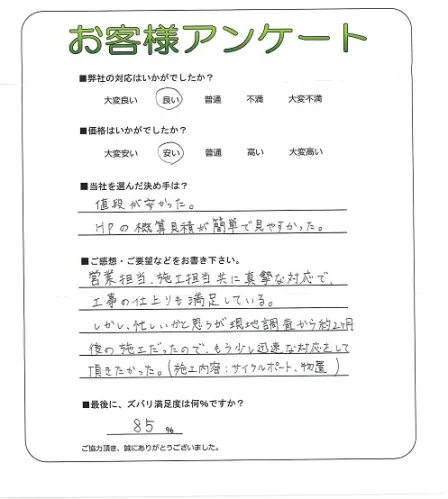 お客様アンケート
■弊社の対応はいかがでしたか?
大変良い 良い 普通 不満 大変不満
■価格はいかがでしたか?
大変安い 安い 普通 高い 大変高い
■当社を選んだ決め手は?
値段が安かった。
HPの概算見積が簡単で見やすかった。
■ご感想・ご要望などをお書き下さい。
営業担当、施工担当共に真摯な対応で、
工事の仕上りも満足している。
しかし、忙しいかと思うが現地調査から約2ヶ月
後の施工だったので、もう少し迅速な対応をして
頂きたかった。(施工内容:サイクルポート、物置)
■最後に、ズバリ満足度は何%ですか?
85 %
ご協力頂き、誠にありがとうございました。